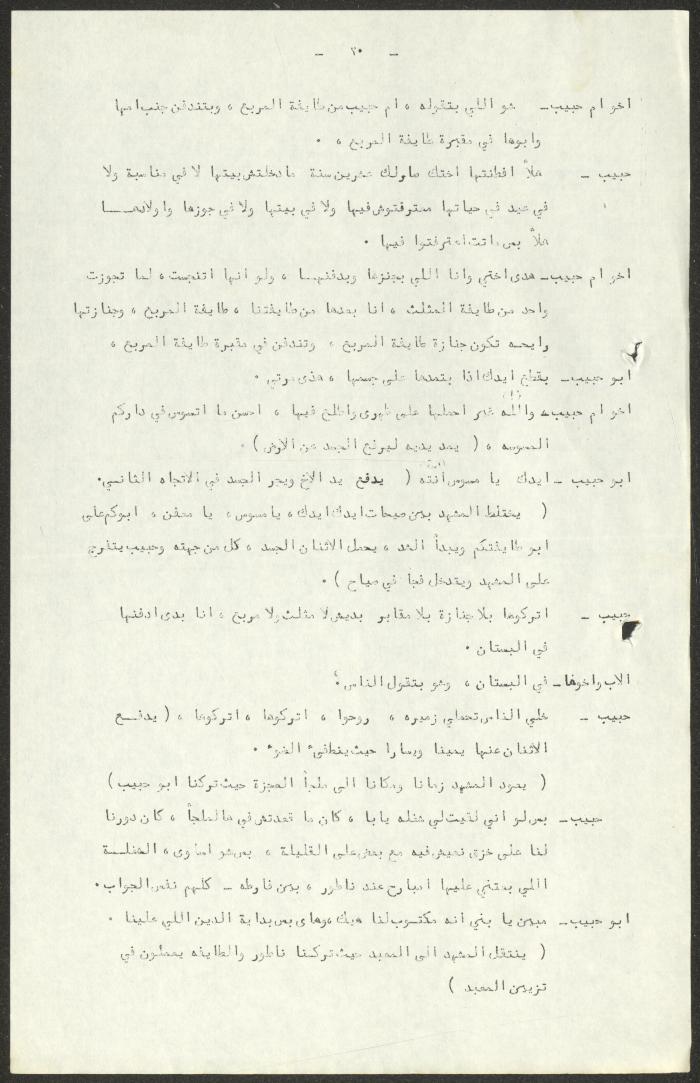 - ٢٠ -
اخو ام حبيب- شو اللي بتقوله ، ام حبيب من طايفة المربع ، وبتندفن جنب امها
وابوها في مقبرة طايفة المربع ، .
حبيب - هلأ افطنتها اختك صارلك عشرين سنة ما دخلتش بيتها لا في مناسبة ولا
في عيد في حياتها معترفتوش فيها ولا في بيتها ولا في جوزها واولادهـــا
هلأ بس ماتت اعترفتوا فيها .
اخو ام حبيب- هدى اختي وانا اللي بجنزها وبدفنهــا ، ولو انها اتنجست ، لما تجوزت
واحد من طايفة المثلث ، انا بعدها من طايفتنا ، طايفة المربع ، وجنازتها
رايحه تكون جنازة طايفة المربع ، وتندفن في مقبرة طايفة المربع ،
ابو حبيب - بقطع ايدك اذا بتمدها على جسمها ، هذى مرتي .
اخو ام حبيب- والله غير احملها على ظهرى واطلع فيها ، احسن ما اتسوس في داركم
المسوسه ، ( يمد يديه ليرفع الجسد عن الارض ) .
ابو حبيب - ايدك يا مسوس أنته ( يدفع يد الاخ ويجر الجسد في الاتجاه الثانــي .
( يختلط المشهد بين صيحات ايدك ايدك ، يا مسوس ، يا معفن ، ابوكم على
ابو طايفتكم ويبدأ الشد ، يحمل الاثنان الجسد ، كل من جهته وحبيب يتفرج
على المشهد ويتدخل فجأ في صياح ) .
حبيب - اتركوها بلا جنازة بلا مقابر بديش لا مثلث ولا مربع ، انا بدى ادفنها
في البستان .
الاب واخوها- في البستان ، وشو بتقول الناس .
حبيب - خلي الناس تحملي زميره ، روحوا ، اتركوها ، اتركوها ، ( يدفــع
الاثنان عنها يمينا ويسارا حيث ينطفىء الضوء .
( يعود المشهد زمانا ومكانا الى ملجأ العجزة حيث تركنا ابو حبيب )
حبيب - بس لو اني لقيت لي شغله يابا ، كان ما قعدتش في هالملجأ ، كان دورنا
لنا على خزق نعيش فيه مع بعض على القليلة ، بس شو اساوى ، الشغلــة
اللي بعتني عليها امبارح عند ناطور ، بين فارطه - كلهم نفس الجواب .
ابو حبيب - مبين يا بني انه مكتوب لنا هيك ، وهاى بس بداية الدين اللي علينا .
( ينتقل المشهد الى المعبد حيث تركنا ناطور والطايفه يعملون في
تزيين المعبد )